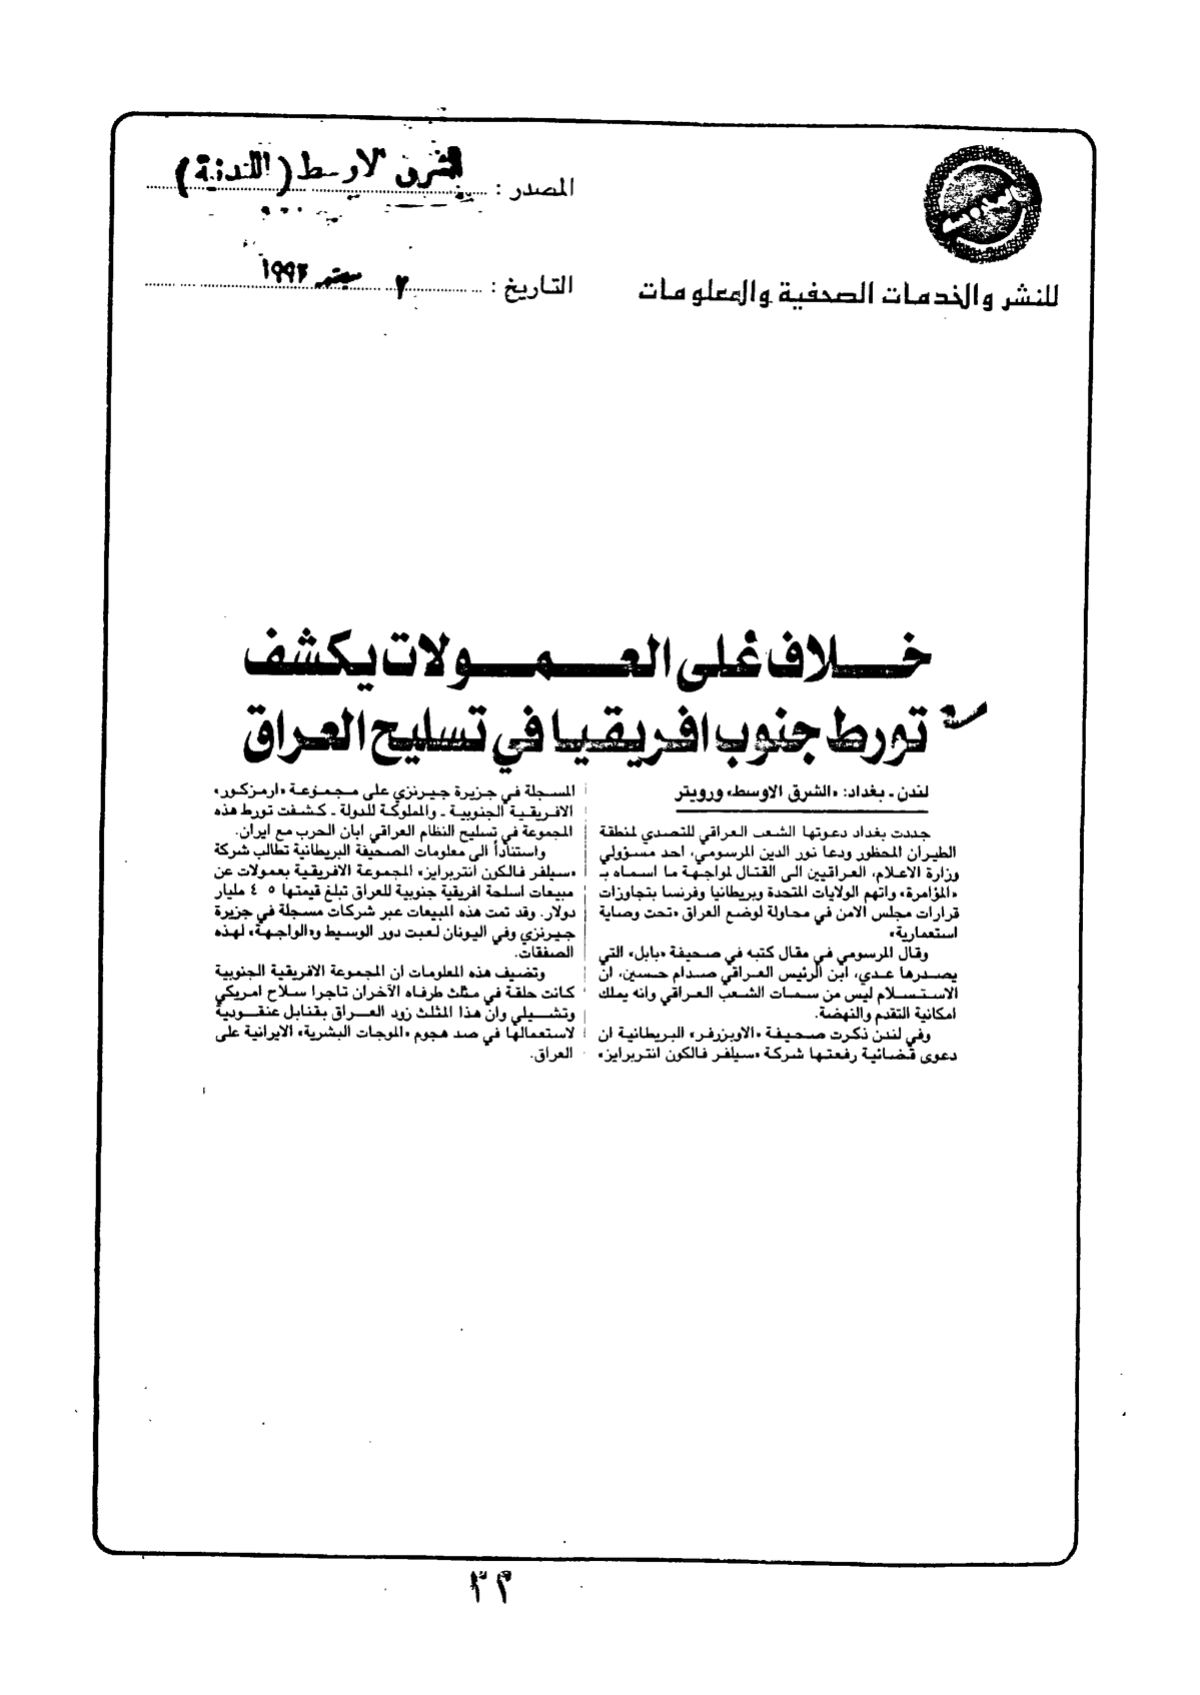 المصدر : الشرق الاوسط (اللندنية)
للنشر والخدمات الصحفية والمعلومات
التاريخ : ٢ سبتمبر ١٩٩٢
خلاف على العمولات يكشف
تورط جنوب افريقيا في تسليح العراق
لندن ـ بغداد: «الشرق الاوسط» ورويتر
جددت بغداد دعوتها الشعب العراقي للتصدي لمنطقة
الطيران المحظور ودعا نور الدين المرسومي، احد مسؤولي
وزارة الاعلام، العراقيين الى القتال لمواجهة ما اسماه بـ
«المؤامرة» واتهم الولايات المتحدة وبريطانيا وفرنسا بتجاوزات
قرارات مجلس الامن في محاولة لوضع العراق «تحت وصاية
استعمارية»
وقال المرسومي في مقال كتبه في صحيفة «بابل» التي
يصدرها عدي، ابن الرئيس العراقي صدام حسين، ان
الاستسلام ليس من سمات الشعب العراقي وانه يملك
امكانية التقدم والنهضة.
وفي لندن ذكرت صحيفة «الاوبزرفر» البريطانية ان
دعوى قضائية رفعتها شركة «سيلفر فالكون انتربرايز»
المسجلة في جزيرة جيرنزي على مجموعة «ارمزكور»
الافريقية الجنوبية ـ والمملوكة للدولة ـ كشفت تورط هذه
المجموعة في تسليح النظام العراقي ابان الحرب مع ايران.
واستناداً الى معلومات الصحيفة البريطانية تطالب شركة
«سيلفر فالكون انتربرايز» المجموعة الافريقية بعمولات عن
مبيعات اسلحة افريقية جنوبية للعراق تبلغ قيمتها ٤٥ مليار
دولار. وقد تمت هذه المبيعات عبر شركات مسجلة في جزيرة
جيرنزي وفي اليونان لعبت دور الوسيط و«الواجهة» لهذه
الصفقات.
وتضيف هذه المعلومات ان المجموعة الافريقية الجنوبية
كانت حلقة في مثلث طرفاه الآخران تاجرا سلاح امريكي
وتشيلي وان هذا المثلث زود العراق بقنابل عنقودية
لاستعمالها في صد هجوم «الموجات البشرية» الايرانية على
العراق.